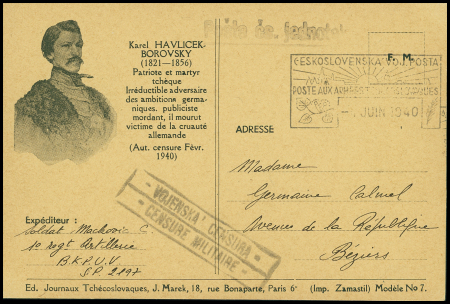 Karel HAVLICEK-
BOROVSKY
(1821—1856)
Patriote et martyr
tchèque
Irréductible adversaire
des ambitions germa-
niques, publiciste
mordant, il mourut
victime de la cruauté
allemande
(Aut. censure Févr.
1940)
F. M.
ČESKOSLOVENSKÁ VOJ. POSTA
POSTE AUX ARMÉES
JUIN 1940
ADRESSE
Madame
Germaine Calmel
Avenue de la République
Béziers
- VOJENSKÁ CENSURA -
- CENSURE MILITAIRE -
Expéditeur :
Soldat Machovic C.
1e regt Artillerie
S.P. 2197
Ed. Journaux Tchécoslovaques, J. Marek, 18, rue Bonaparte, Paris 6e (Imp. Zamastil) Modèle No 7.